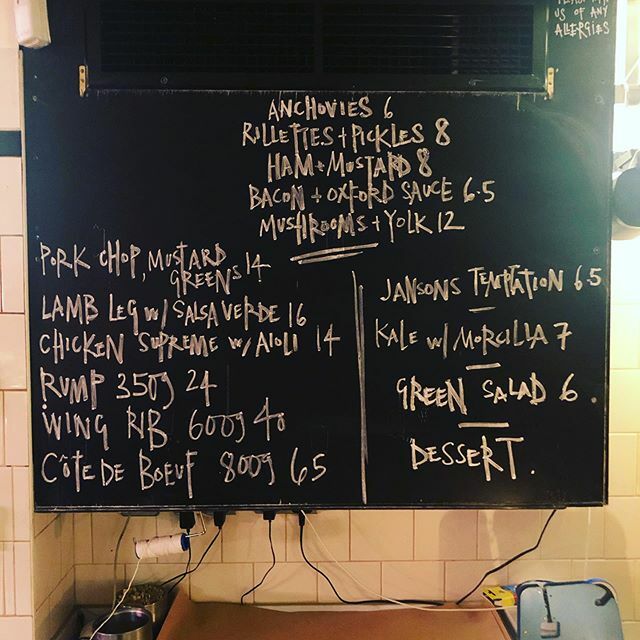 US OF ANY
ALLERGIES
ANCHOVIES 6
RILLETTES + PICKLES 8
HAM + MUSTARD 8
BACON + OXFORD SAUCE 6.5
MUSHROOMS + YOLK 12
PORK CHOP, MUSTARD
GREENS 14
LAMB LEG W/ SALSA VERDE 16
CHICKEN SUPREME W/ AIOLI 14
RUMP 350g 24
WING RIB 600g 40
CÔTE DE BOEUF 800g 65
JANSONS TEMPTATION 6.5
KALE W/ MORCILLA 7
GREEN SALAD 6.
DESSERT.